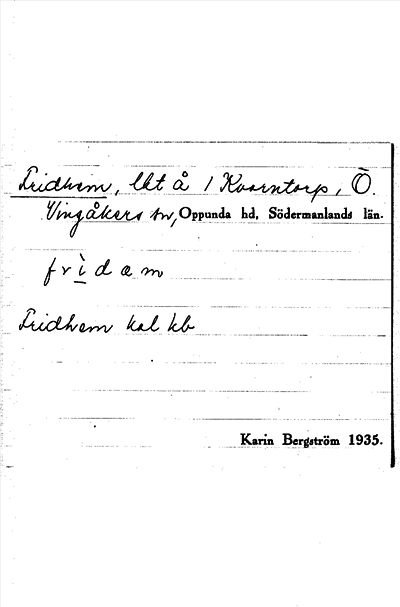 Fridhem, lht å 1 Kvarntorp, Ö.
Vingåkers sn, Oppunda hd, Södermanlands län.
fr̀idæm
Fridhem kal kb
Karin Bergström 1935.